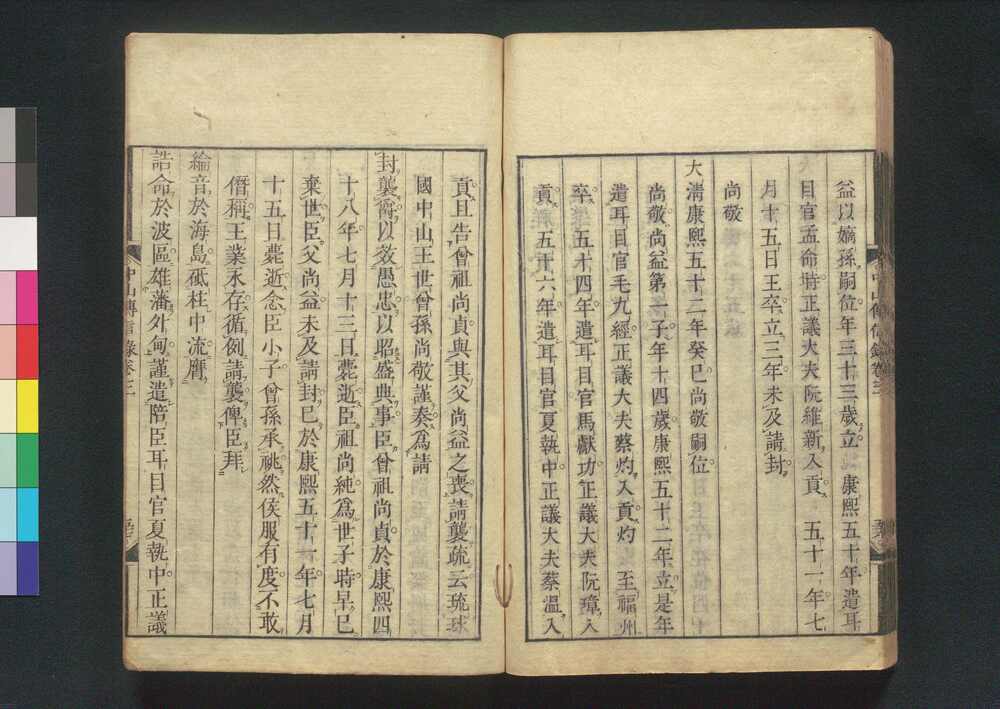 益以嫡孫嗣位年三十三歲立 康熙五十年遣耳
目官孟命時正議大夫阮維新入貢 五十一年七
月十五日王卒立三年未及請封
尚敬
大清康熙五十二年癸巳尚敬嗣位
尚敬尚益第一子年十四歲康熙五十二年立是年
遣耳目官毛九經正議大夫蔡灼入貢灼 至福州
卒 五十四年遣耳目官馬獻功正議大夫阮璋入
貢 五十六年遣耳目官夏執中正議大夫蔡溫入
貢且告曾祖尚貞與其父尚益之喪請襲疏云琉球
國中山王世曾孫尚敬謹奏爲請
封襲爵以效愚忠以昭盛典事臣曾祖尚貞於康熙四
十八年七月十三日薨逝臣祖尚純爲世子時早已
棄世臣父尚益未及請封已於康熙五十一年七月
十五日薨逝念臣小子曾孫承祧然侯服有度不敢
僭稱王業永存循例請襲俾臣拜
綸音於海島砥柱中流膺
誥命於波區雄藩外甸謹遣陪臣耳目官夏執中正議
中山傳信錄卷三